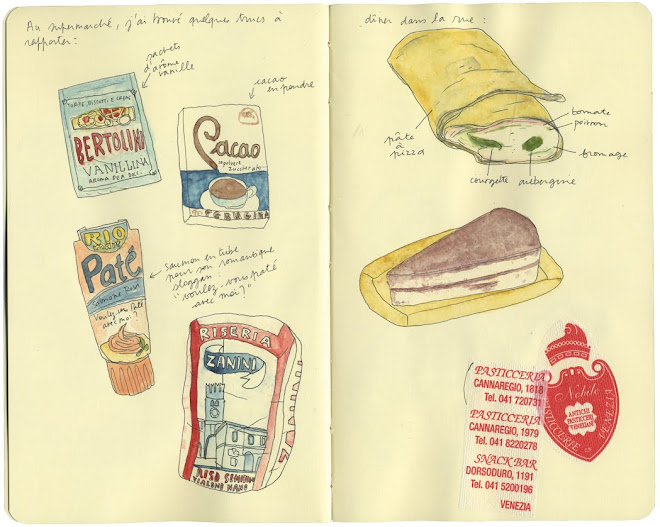 Au supermarché, j'ai trouvé quelques trucs à
rapporter:
sachets
d'arôme
vanille
cacao
en poudre
TORTE, BISCOTTI E CREME
BERTOLINI
VANILLINA
AROMA PER DOLCI
Cacao
zuccherato
PERUGINA
RIO
mare
Paté
Salmone Rosa
Voulez-vous Paté
avec moi?
saumon en tube
pour son romantique
sloggan:
"voulez-vous paté
avec moi?"
RISERIA
ZANINI
RISO SEMIFINO
VIALONE NANO
dîner dans la rue:
pâte
à
pizza
tomate
poisson
fromage
courgette aubergine
PASTICCERIA
CANNAREGIO, 1818
Tel. 041 720731
PASTICCERIA
CANNAREGIO, 1979
Tel. 041 8220278
SNACK BAR
DORSODURO, 1191
Tel. 041 5200196
VENEZIA
Nobile
ANTICHI
PASTICCERI
VENEZIANI
PASTICCERIE
VENEZIA